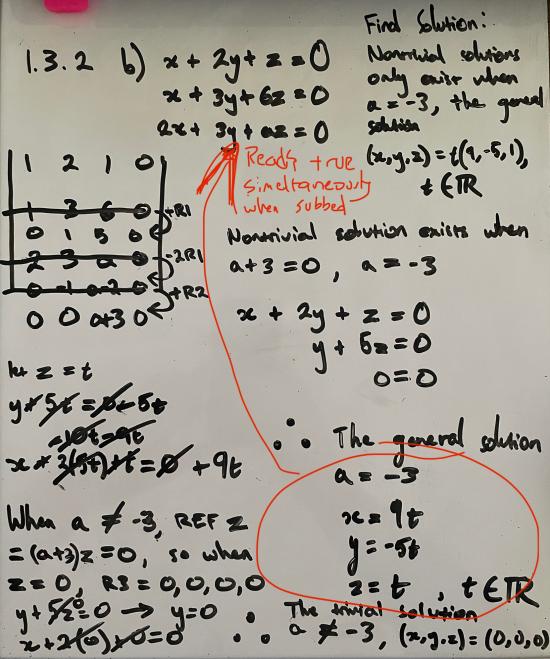 1.3.2 b) x + 2y + z = 0
x + 3y + 6z = 0
2x + 3y + az = 0
Find Solution:
Nontrivial solutions
only exist when
a = -3, the general
solution
(x,y,z) = t(9,-5,1),
t ∈ ℝ
Reads true
simeltaneously
when subbed
1 2 1 0
1 3 6 0
+R1
0 1 5 0
2 3 a 0
-2R1
0 -1 a-2 0
+R2
0 0 a+3 0
Nontrivial solution exists when
a+3=0, a = -3
x + 2y + z = 0
y + 5z = 0
0 = 0
let z = t
y + 5t = 0 - 5t
-10t = 9t
= 0 + 9t
∴ The general solution
a = -3
x = 9t
y = -5t
z = t, t ∈ ℝ
When a ≠ -3, REF z
= (a+3)z = 0, so when
z = 0, R3 = 0,0,0,0
y + 5z⁰ = 0 → y = 0
x + 2(0) + 0 = 0
∴ The trivial solution
a ≠ -3, (x,y,z) = (0,0,0)